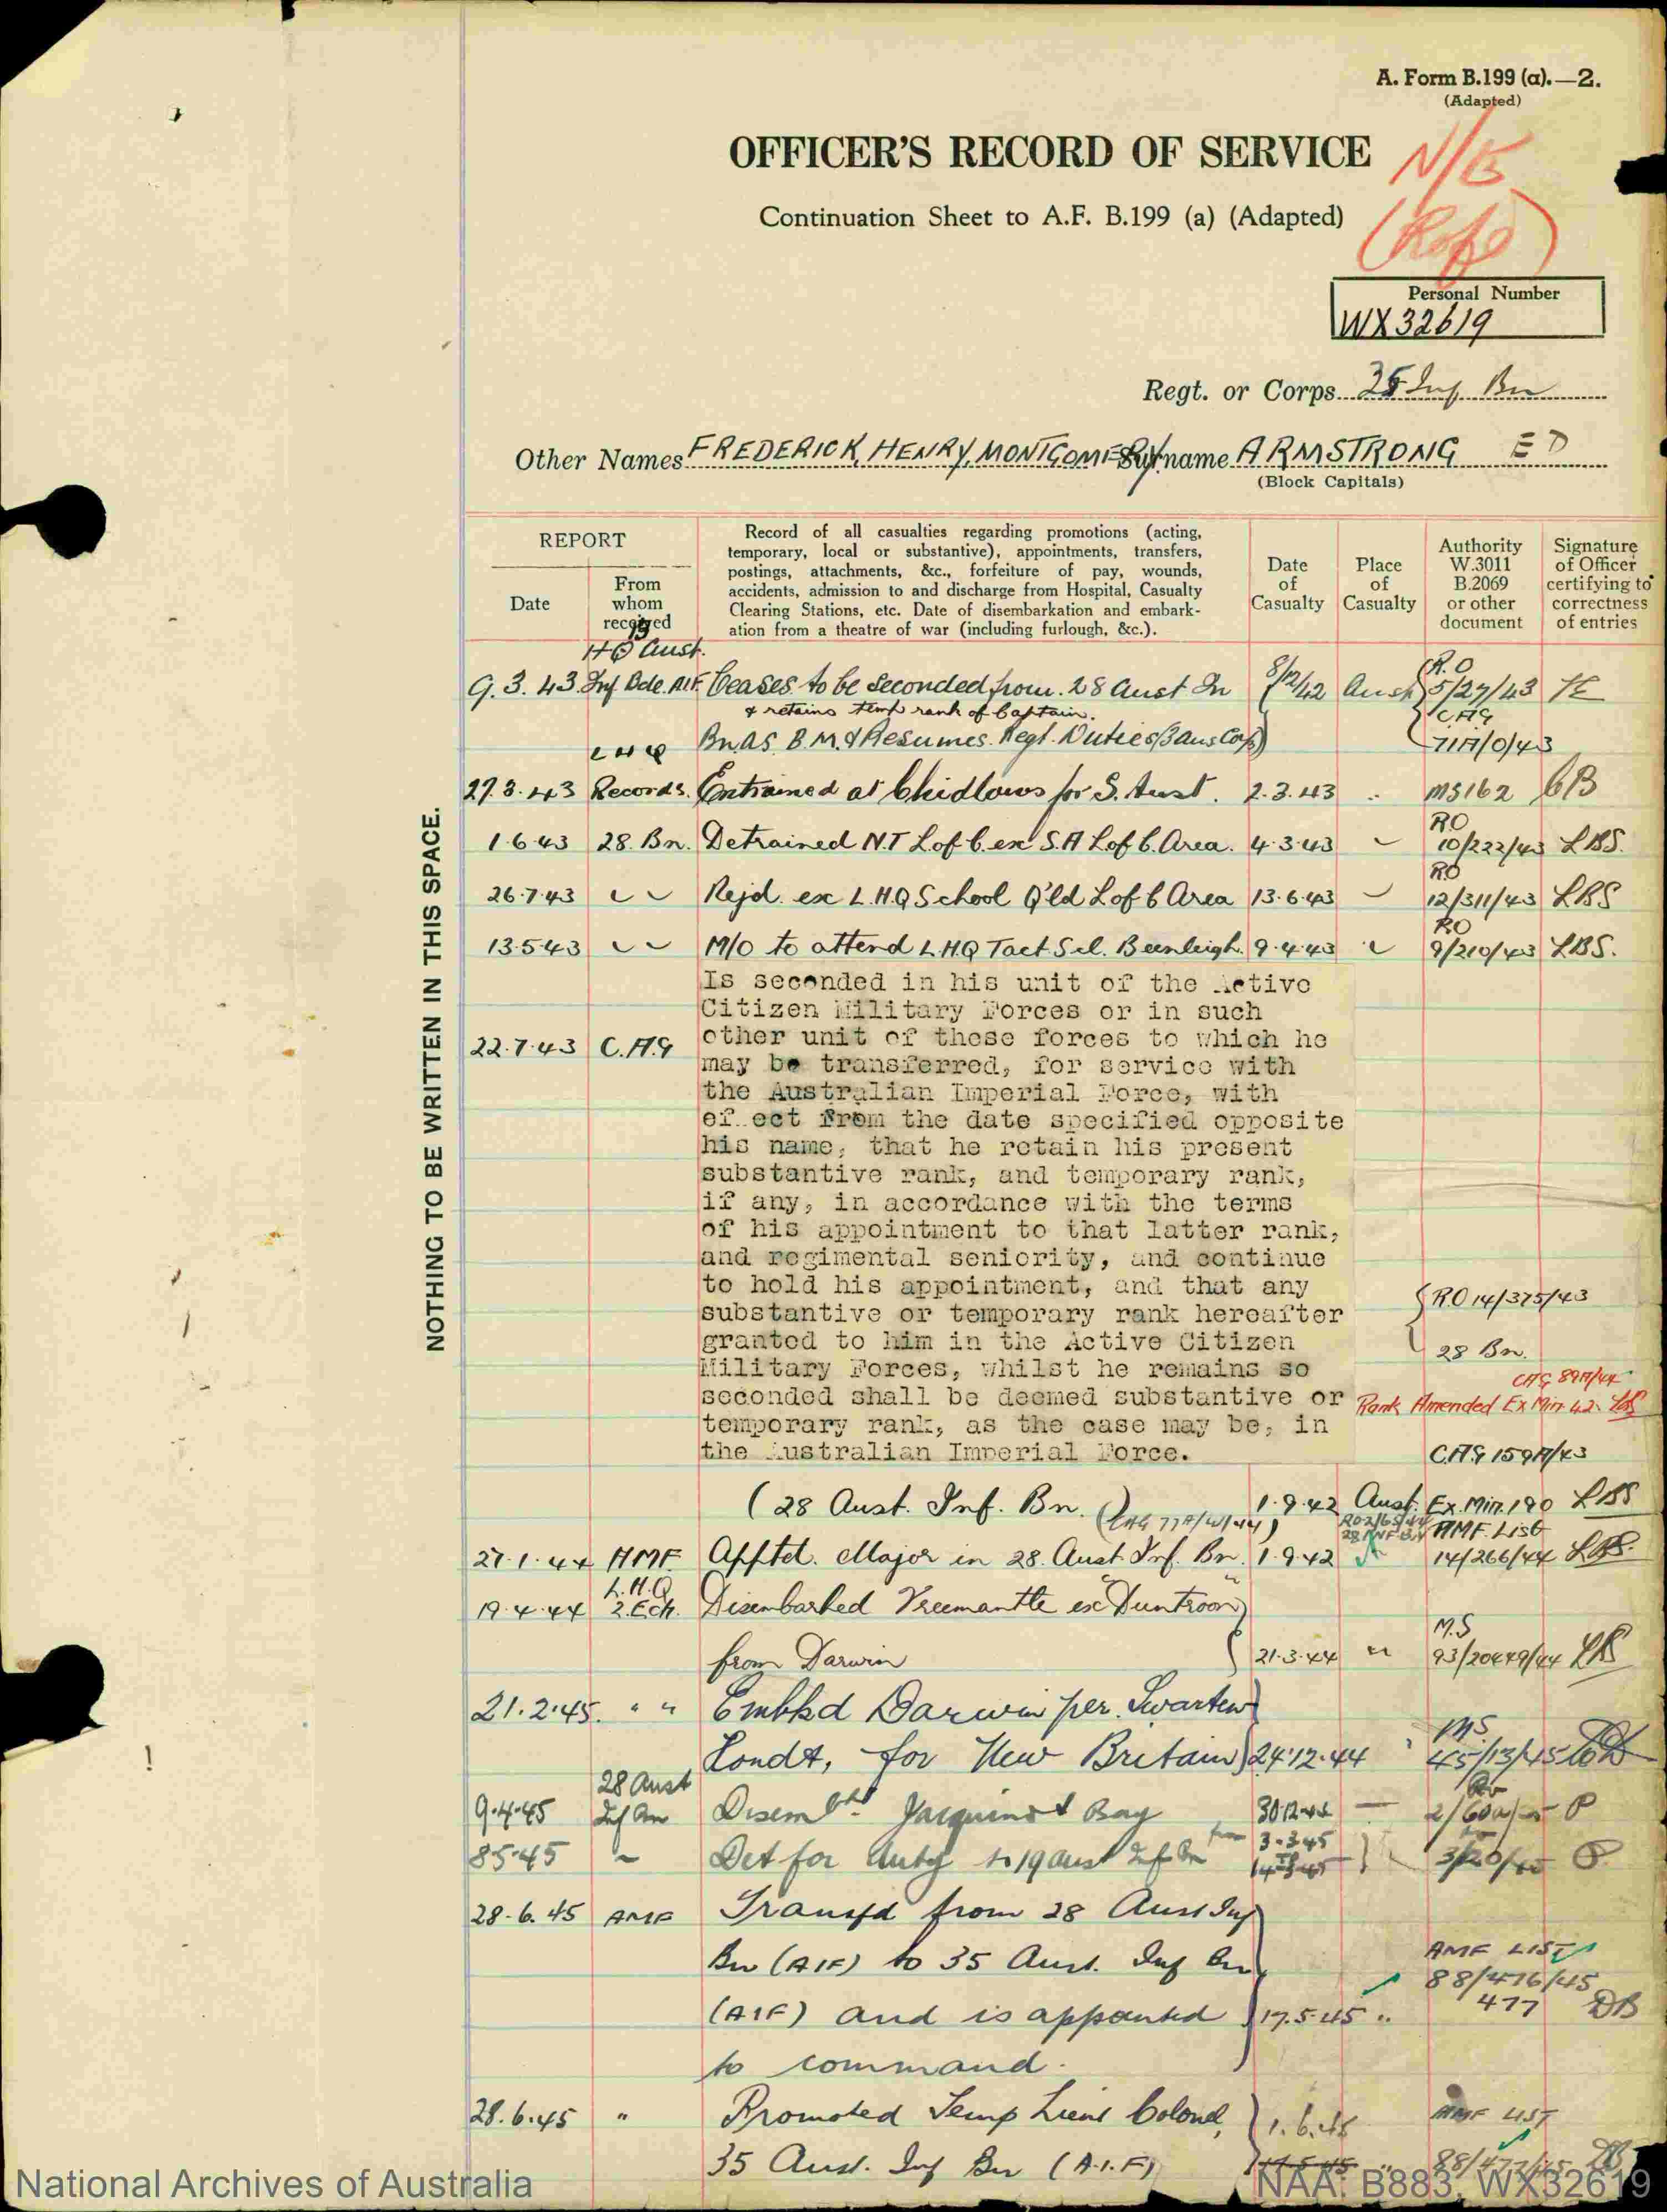 A. Form B.199 (a).—2.
(Adapted)
OFFICER'S RECORD OF SERVICE
N/E
Continuation Sheet to A.F. B.199 (a) (Adapted)
Personal Number
WX32619
Regt. or Corps 35 Inf Bn
Other Names FREDERICK, HENRY, MONTGOMERY Surname ARMSTRONG ED
(Block Capitals)
NOTHING TO BE WRITTEN IN THIS SPACE.
REPORT
Date
From whom received
Record of all casualties regarding promotions (acting,
temporary, local or substantive), appointments, transfers,
postings, attachments, &c., forfeiture of pay, wounds,
accidents, admission to and discharge from Hospital, Casualty
Clearing Stations, etc. Date of disembarkation and embark-
ation from a theatre of war (including furlough, &c.).
Date of Casualty
Place of Casualty
Authority W.3011 B.2069 or other document
Signature of Officer certifying to correctness of entries
HQ 13 Aust.
9.3.43 Inf Bde. AIF. Ceases to be seconded from 28 Aust In 8/2/42 Aust R.O 5/27/43
& retains temp rank of Captain.
Bn. as B.M. & Resumes Regt. Duties (3 Aus Corps) CAG 71A/0/43
LHQ
27.3.43 Records. Entrained at Chidlows for S. Aust. 2.3.43 MS162 GB
1.6.43 28. Bn. Detrained N.T L of C. ex S.A L of C. Area. 4.3.43 RO 10/222/43 LBS.
26.7.43 Rejd. ex L.H.Q School Q'ld L of C Area 13.6.43 RO 12/311/43 LBS
13.5.43 M/O to attend L.H.Q Tact Scl. Beenleigh. 9.4.43 RO 9/210/43 LBS.
Is seconded in his unit of the Active
Citizen Military Forces or in such
22.7.43 C.A.G other unit of these forces to which he
may be transferred, for service with
the Australian Imperial Force, with
ef.ect from the date specified opposite
his name, that he retain his present
substantive rank, and temporary rank,
if any, in accordance with the terms
of his appointment to that latter rank,
and regimental seniority, and continue
to hold his appointment, and that any
substantive or temporary rank hereafter R.O 14/375/43
granted to him in the Active Citizen 28 Bn.
Military Forces, whilst he remains so CAG 89A/44
seconded shall be deemed substantive or Rank Amended Ex Min 42. LBS
temporary rank, as the case may be, in
the Australian Imperial Force. C.A.G 159A/43
(28 Aust. Inf. Bn. (CAG 77A/W/44) 1.9.42 Aust. Ex. Min. 190 LBS
AMF. List
27.1.44 AMF. Apptd. Major in 28. Aust Inf. Bn. 1.9.42 14/266/44 LBS.
L.H.Q
19.4.44 2. Ech. Disembarked Freemantle ex "Duntroon"
from Darwin 21.3.44 M.S 93/20449/44 LBS
21.2.45. " " Embkd Darwin per. Swarten
Hondt, for New Britain 24.12.44 MS 45/13/45
28 Aust
9.4.45 Inf Bn Disembkd Jacquinot Bay 30.12.44
8.5.45 Det for duty to 19 Aust Inf Bn from 3.3.45
28.6.45 AMF Transfd from 28 Aust Inf
Bn (AIF) to 35 Aust. Inf Bn AMF LIST
(AIF) and is appointed 17.5.45 88/476/45 477 DB
to command.
28.6.45 " Promoted Temp Lieut Colonel, 1.6.45 AMF LIST
35 Aust. Inf Bn (A.I.F) 17.5.45 88/477/45 DB
National Archives of Australia
NAA: B883, WX32619